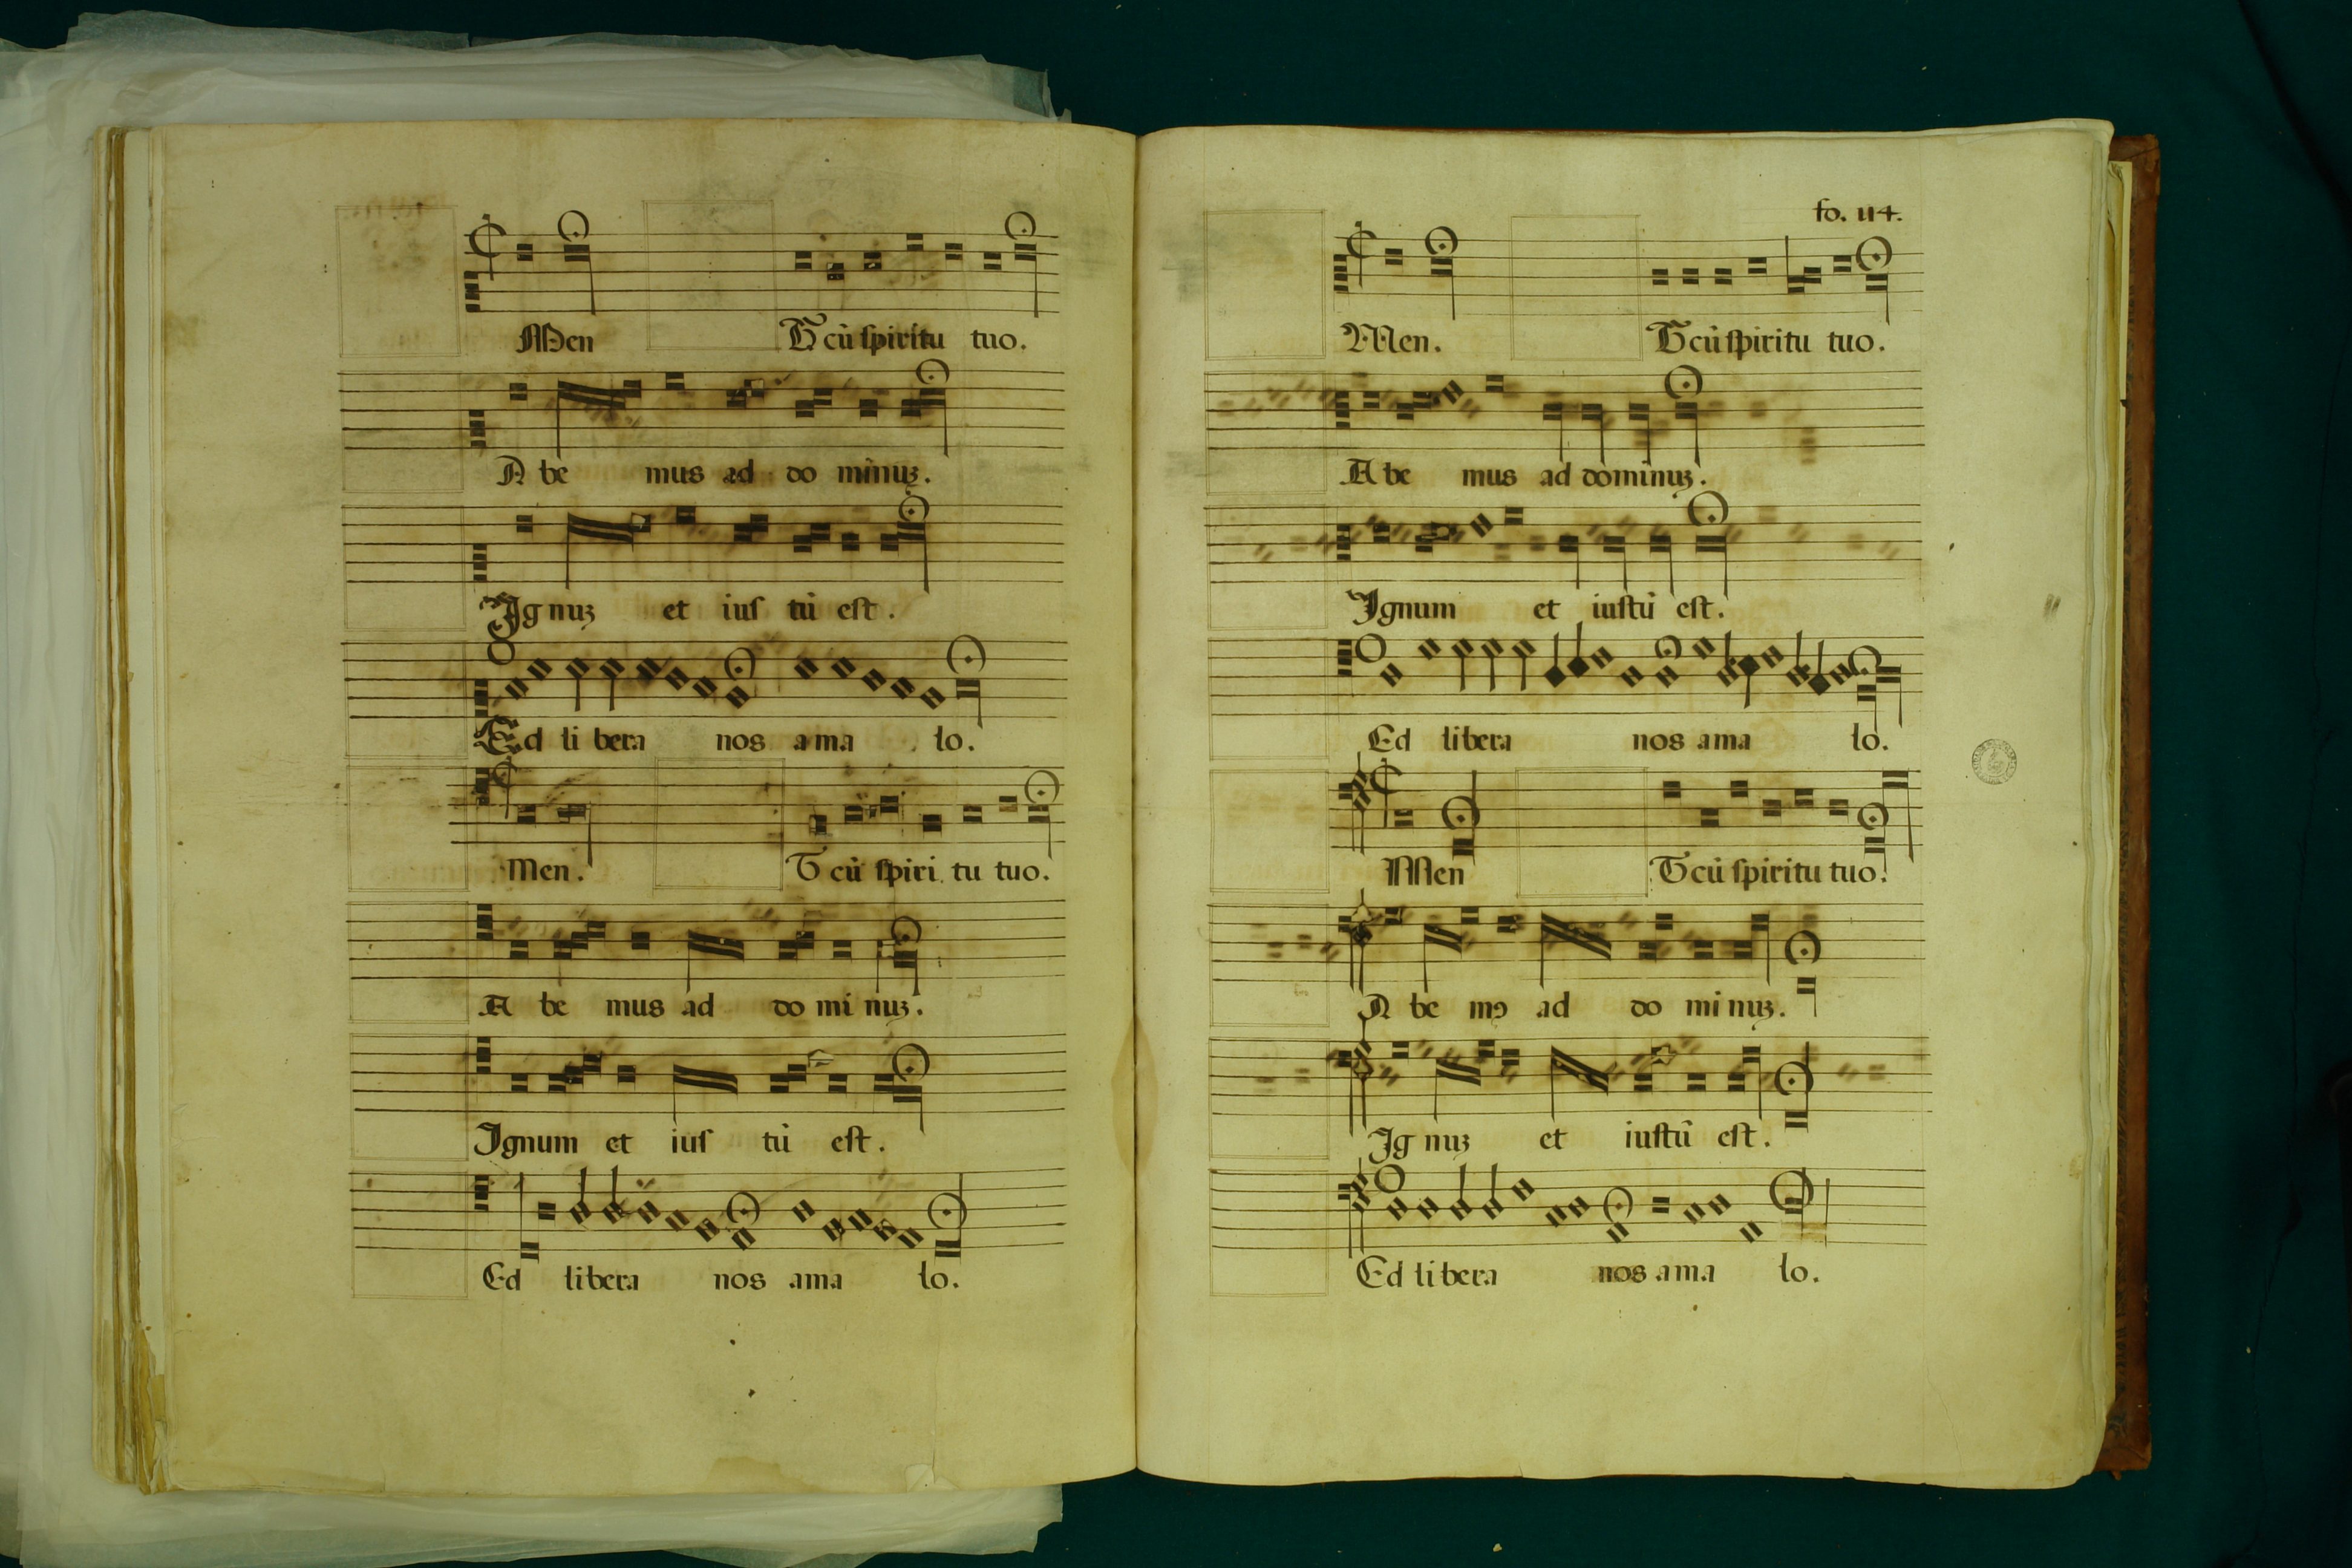 Men Et cū spiritu tuo.
A be mus ad do minuȝ.
Ig nuȝ et ius tū est.
Ed li bera nos a ma lo.
Men. Et cū spiri tu tuo.
A be mus ad do mi nuȝ.
Ignum et ius tū est.
Ed libera nos ama lo.
fo. 114.
Men. Et cū spiritu tuo.
A be mus ad dominuȝ.
Ignum et iustū est.
Ed libera nos ama lo.
Men Et cū spiritu tuo.
A be mꝯ ad do mi nuȝ.
Ig nuȝ et iustū est.
Ed libera nos ama lo.